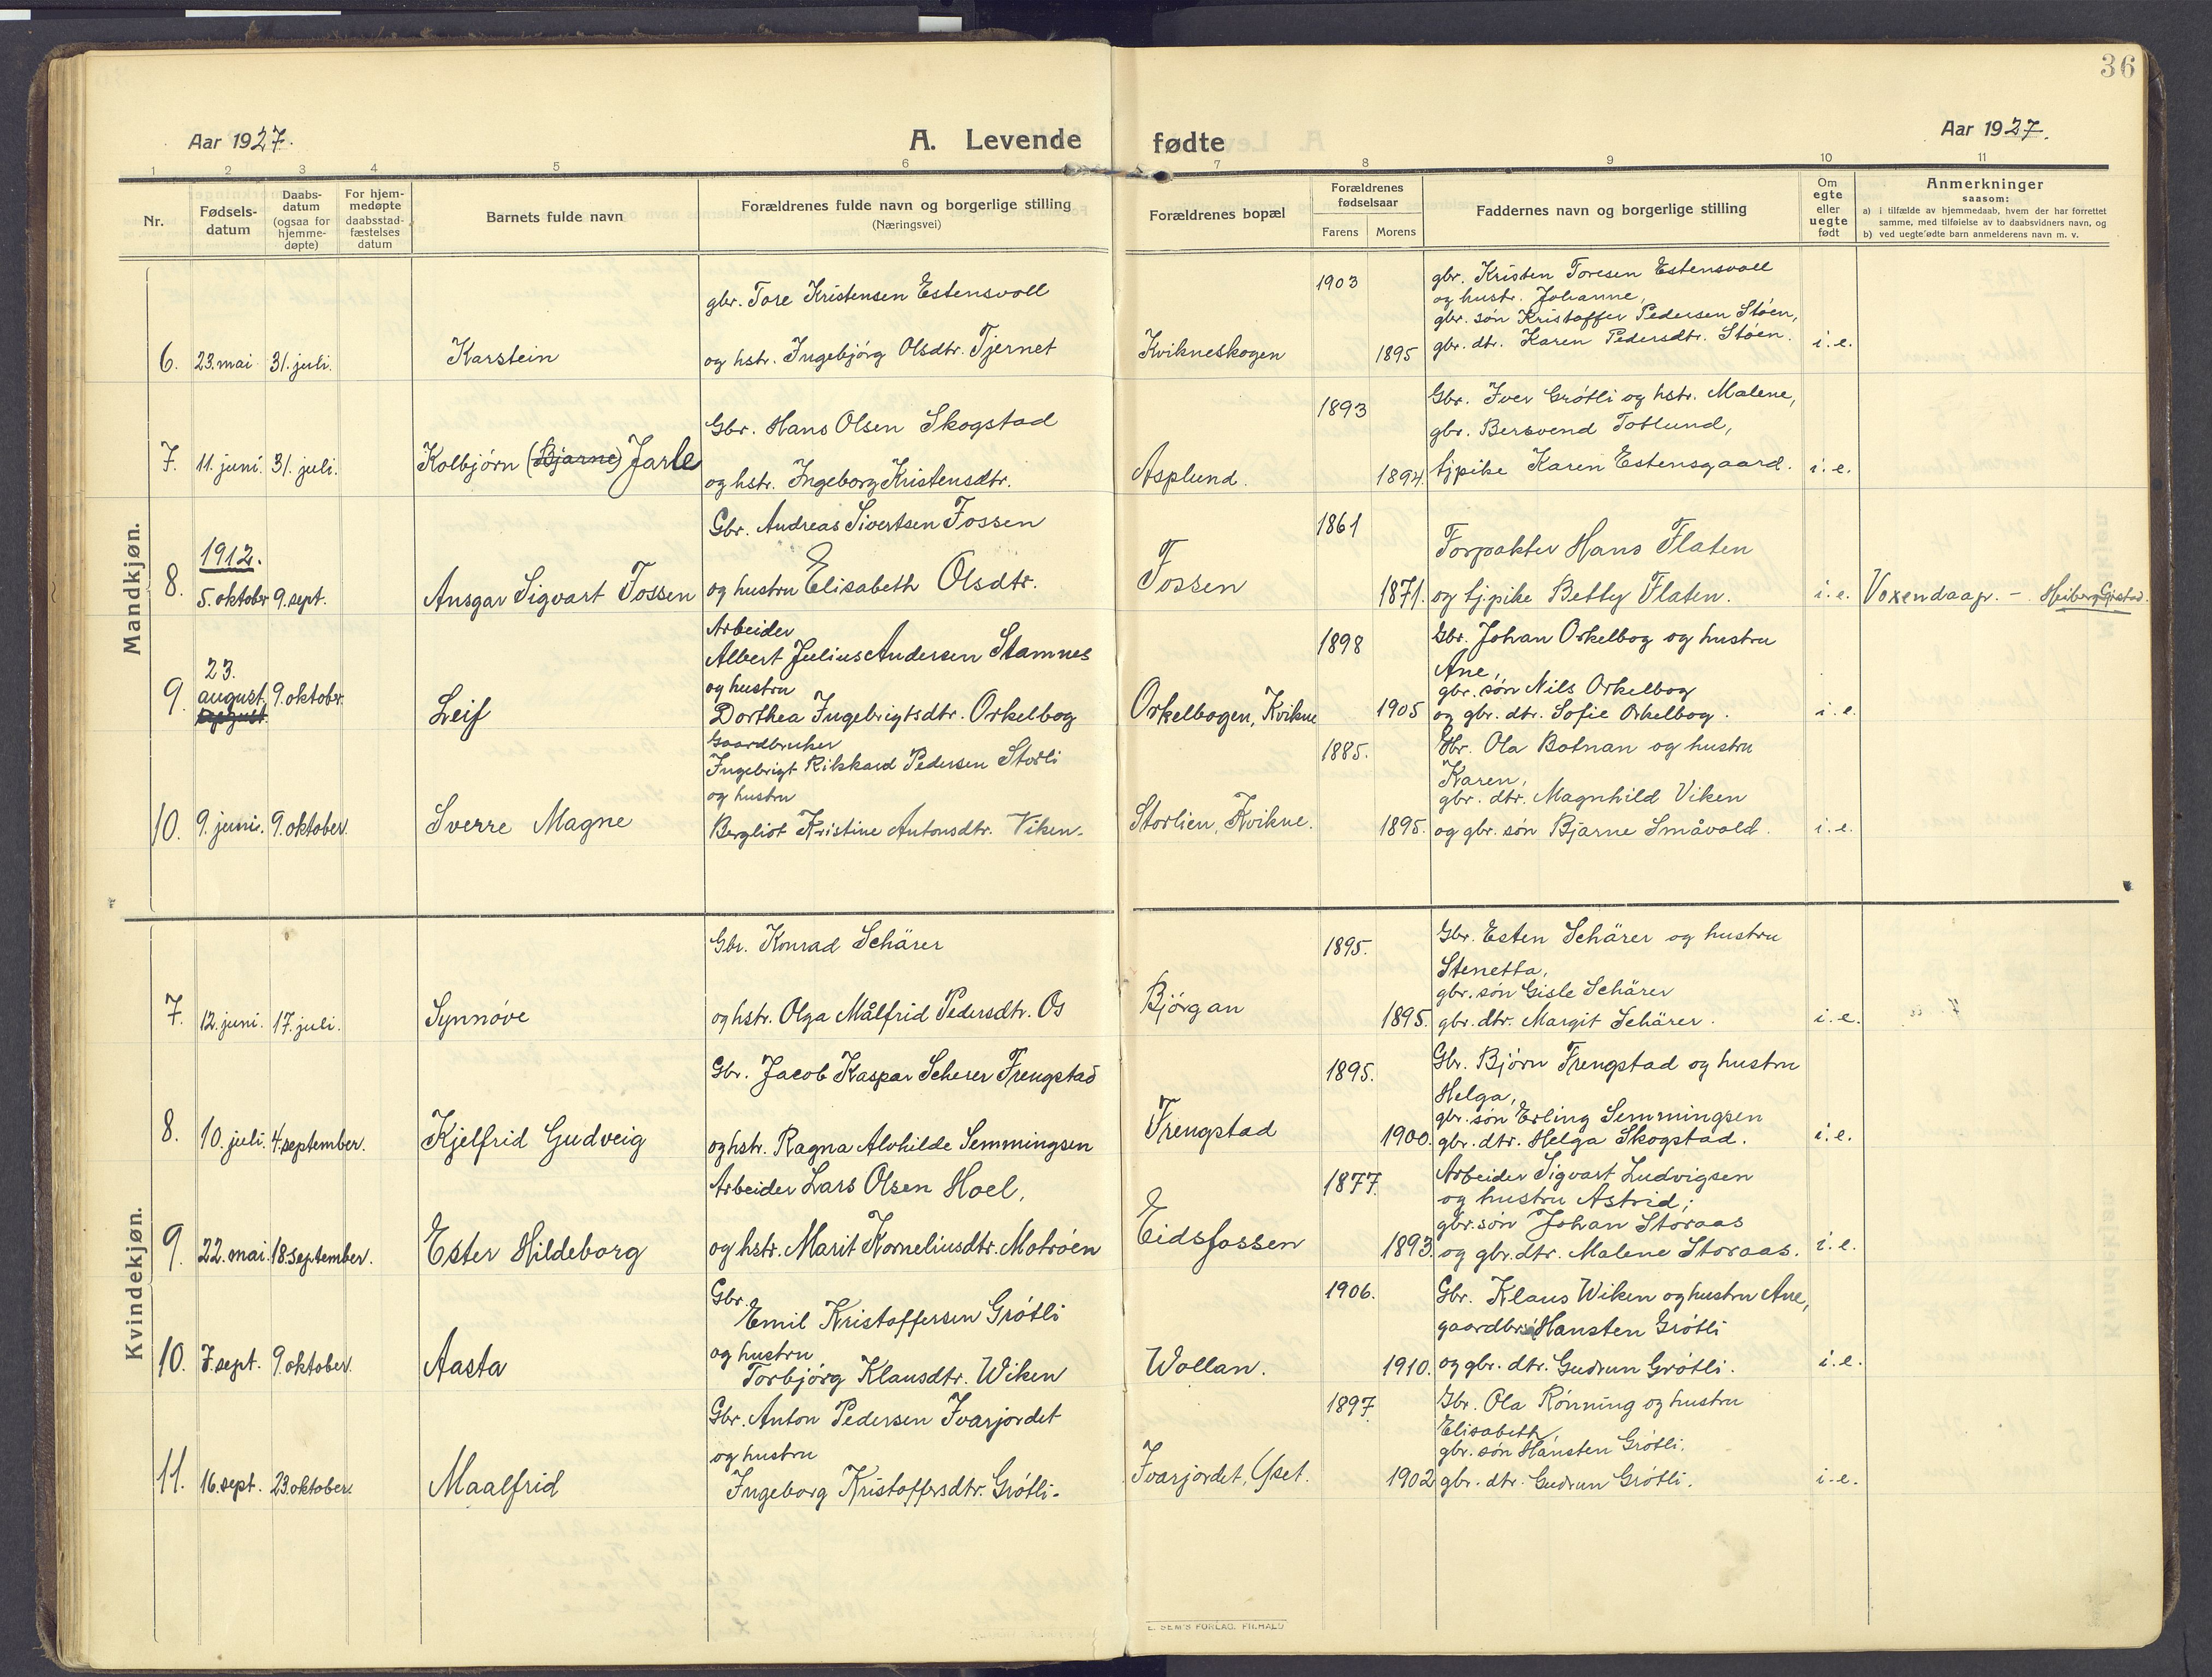 36
Aar 1927.
A. Levende fødte
Aar 1927.
1 2 3 4 5 6 7 8 9 10 11
Nr.
Fødsels-
datum
Daabs-
datum
(ogsaa for
hjemme-
døpte)
For hjem-
medøpte
daabsstad-
fæstelses
datum
Barnets fulde navn
Forældrenes fulde navn og borgerlige stilling
(Næringsvei)
Forældrenes bopæl
Forældrenes
fødselsaar
Farens Morens
Faddernes navn og borgerlige stilling
Om
egte
eller
uegte
født
Anmerkninger
saasom:
a) i tilfælde av hjemmedaab, hvem der har forrettet
samme, med tilføielse av to daabsvidners navn, og
b) ved uegte fødte barn anmelderens navn m. v.
Mandkjøn.
6. 23. mai 31. juli. Karstein
gbr. Tore Kristensen Estensvoll
og hstr. Ingebjörg Olsdtr. Tjernet
Kvikneskogen
1903
1895
gbr. Kristen Toresen Estensvoll
og hustr. Johanne,
gbr. sön Kristoffer Pedersen Stöen,
gbr. dtr. Karen Pedersdtr. Stöen.
i. e.
7. 11. juni. 31. juli. Kolbjörn (Bjarne) Jarle
Gbr. Hans Olsen Skogstad
og hstr. Ingeborg Kristensdtr.
Asplund.
1893
1894.
Gbr. Iver Grötli og hstr. Malene,
gbr. Bersvend Totlund,
tjpike Karen Estensgaard.
i. e.
8. 1912.
5. oktober 9. sept. Ansgar Sigvart Fossen
Gbr. Andreas Sivertsen Fossen
og hustru Elisabeth Olsdtr.
Fossen
1861
1871.
Forpakter Hans Flaten
og tjpike Betty Flaten.
i. e. Voxendaap. –
9. 23.
august 9. oktober. Leif
Arbeider
Albert Julius Andersen Stamnes
og hustru
Dorthea Ingebrigtsdtr. Orkelbog
Orkelbogen, Kvikne
1898
1905
Gbr. Johan Orkelbog og hustru
Ane,
gbr. sön Nils Orkelbog
og gbr. dtr. Sofie Orkelbog.
i. e.
10. 9. juni. 9. oktober. Sverre Magne
Gaardbruker
Ingebrigt Rikkard Pedersen Storli
og hustru
Bergliot Kristine Antonsdtr. Viken.
Storlien, Kvikne.
1885.
1895.
Gbr. Ola Botnan og hustru
Karen,
gbr. dtr. Magnhild Viken
og gbr. sön Bjarne Småvold.
i. e.
Kvindekjøn.
7. 12. juni. 17. juli. Synnöve
Gbr. Konrad Schärer
og hstr. Olga Målfrid Pedersdtr. Os
Björgan
1895.
1895.
Gbr. Esten Schärer og hustru
Stenetta,
gbr. sön Gisle Schärer
gbr. dtr. Margit Schärer.
i. e.
8. 10. juli. 4. september. Kjelfrid Gudveig
Gbr. Jacob Kaspar Scherer Frengstad
og hstr. Ragna Alvhilde Semmingsen
Frengstad
1895.
1900.
Gbr. Björn Frengstad og hustru
Helga,
gbr. sön Erling Semmingsen
gbr. dtr. Helga Skogstad.
i. e.
9. 22. mai. 18. september. Ester Hildeborg
Arbeider Lars Olsen Hoel,
og hstr. Marit Korneliusdtr. Motröen
Eidsfossen
1877.
1893.
Arbeider Sigvart Ludvigsen
og hustru Astrid;
gbr. sön Johan Storaas
og gbr. dtr. Malene Storaas.
i. e.
10. 7. sept. 9. oktober. Aasta
Gbr.
Emil Kristoffersen Grötli
og hustru
Torbjörg Klausdtr. Wiken
Wollan.
1906.
1910.
Gbr. Klaus Wiken og hustru Ane,
gaardbr. Hansten Grötli
og gbr. dtr. Gudrun Grötli.
i. e.
11. 16. sept. 23. oktober. Maalfrid
Gbr. Anton Pedersen Ivarjordet
og hustru
Ingeborg Kristoffersdtr. Grötli.
Ivarjordet, Yset.
1897
1902
Gbr. Ola Rönning og hustru
Elisabeth,
gbr. sön Hansten Grötli.
gbr. dtr. Gudrun Grötli.
i. e.
E. SEM'S FORLAG, FR.HALD